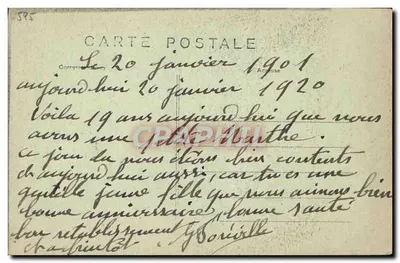 595
CARTE POSTALE
Correspondance Adresse
Le 20 janvier 1901
aujourd'hui 20 janvier 1920
Voila 19 ans aujourd'hui que nous
avons une petite Marthe.
ce jour la nous étions bien contents
et aujourd'hui aussi, car tu es une
gentille jeune fille que nous aimons bien
bonne anniversaire, bonne santé
bon retablissement
a bientôt